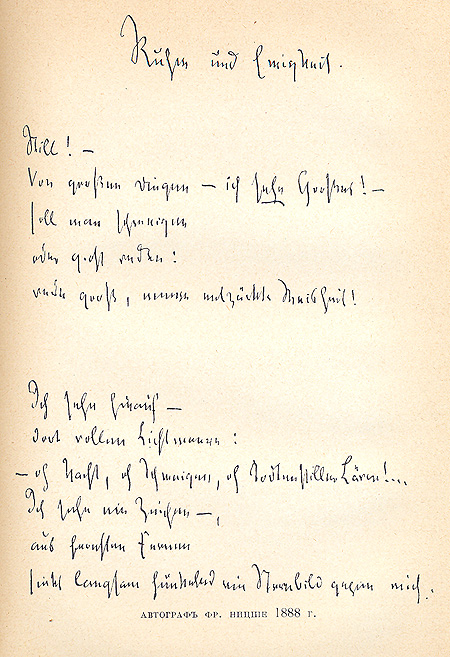 Ruhm und Ewigkeit.
Still! —
Von großen Dingen — ich sehe Großes! —
soll man schweigen
oder groß reden:
rede groß, meine entzückte Weisheit!
Ich sehe hinauf —
dort rollen Lichtmeere:
— oh Nacht, oh Schweigen, oh todtenstiller Lärm!...
Ich sehe ein Zeichen —,
aus fernsten Fernen
sinkt langsam funkelnd ein Sternbild gegen mich.
АВТОГРАФЪ ФР. НИЦШЕ 1888 Г.